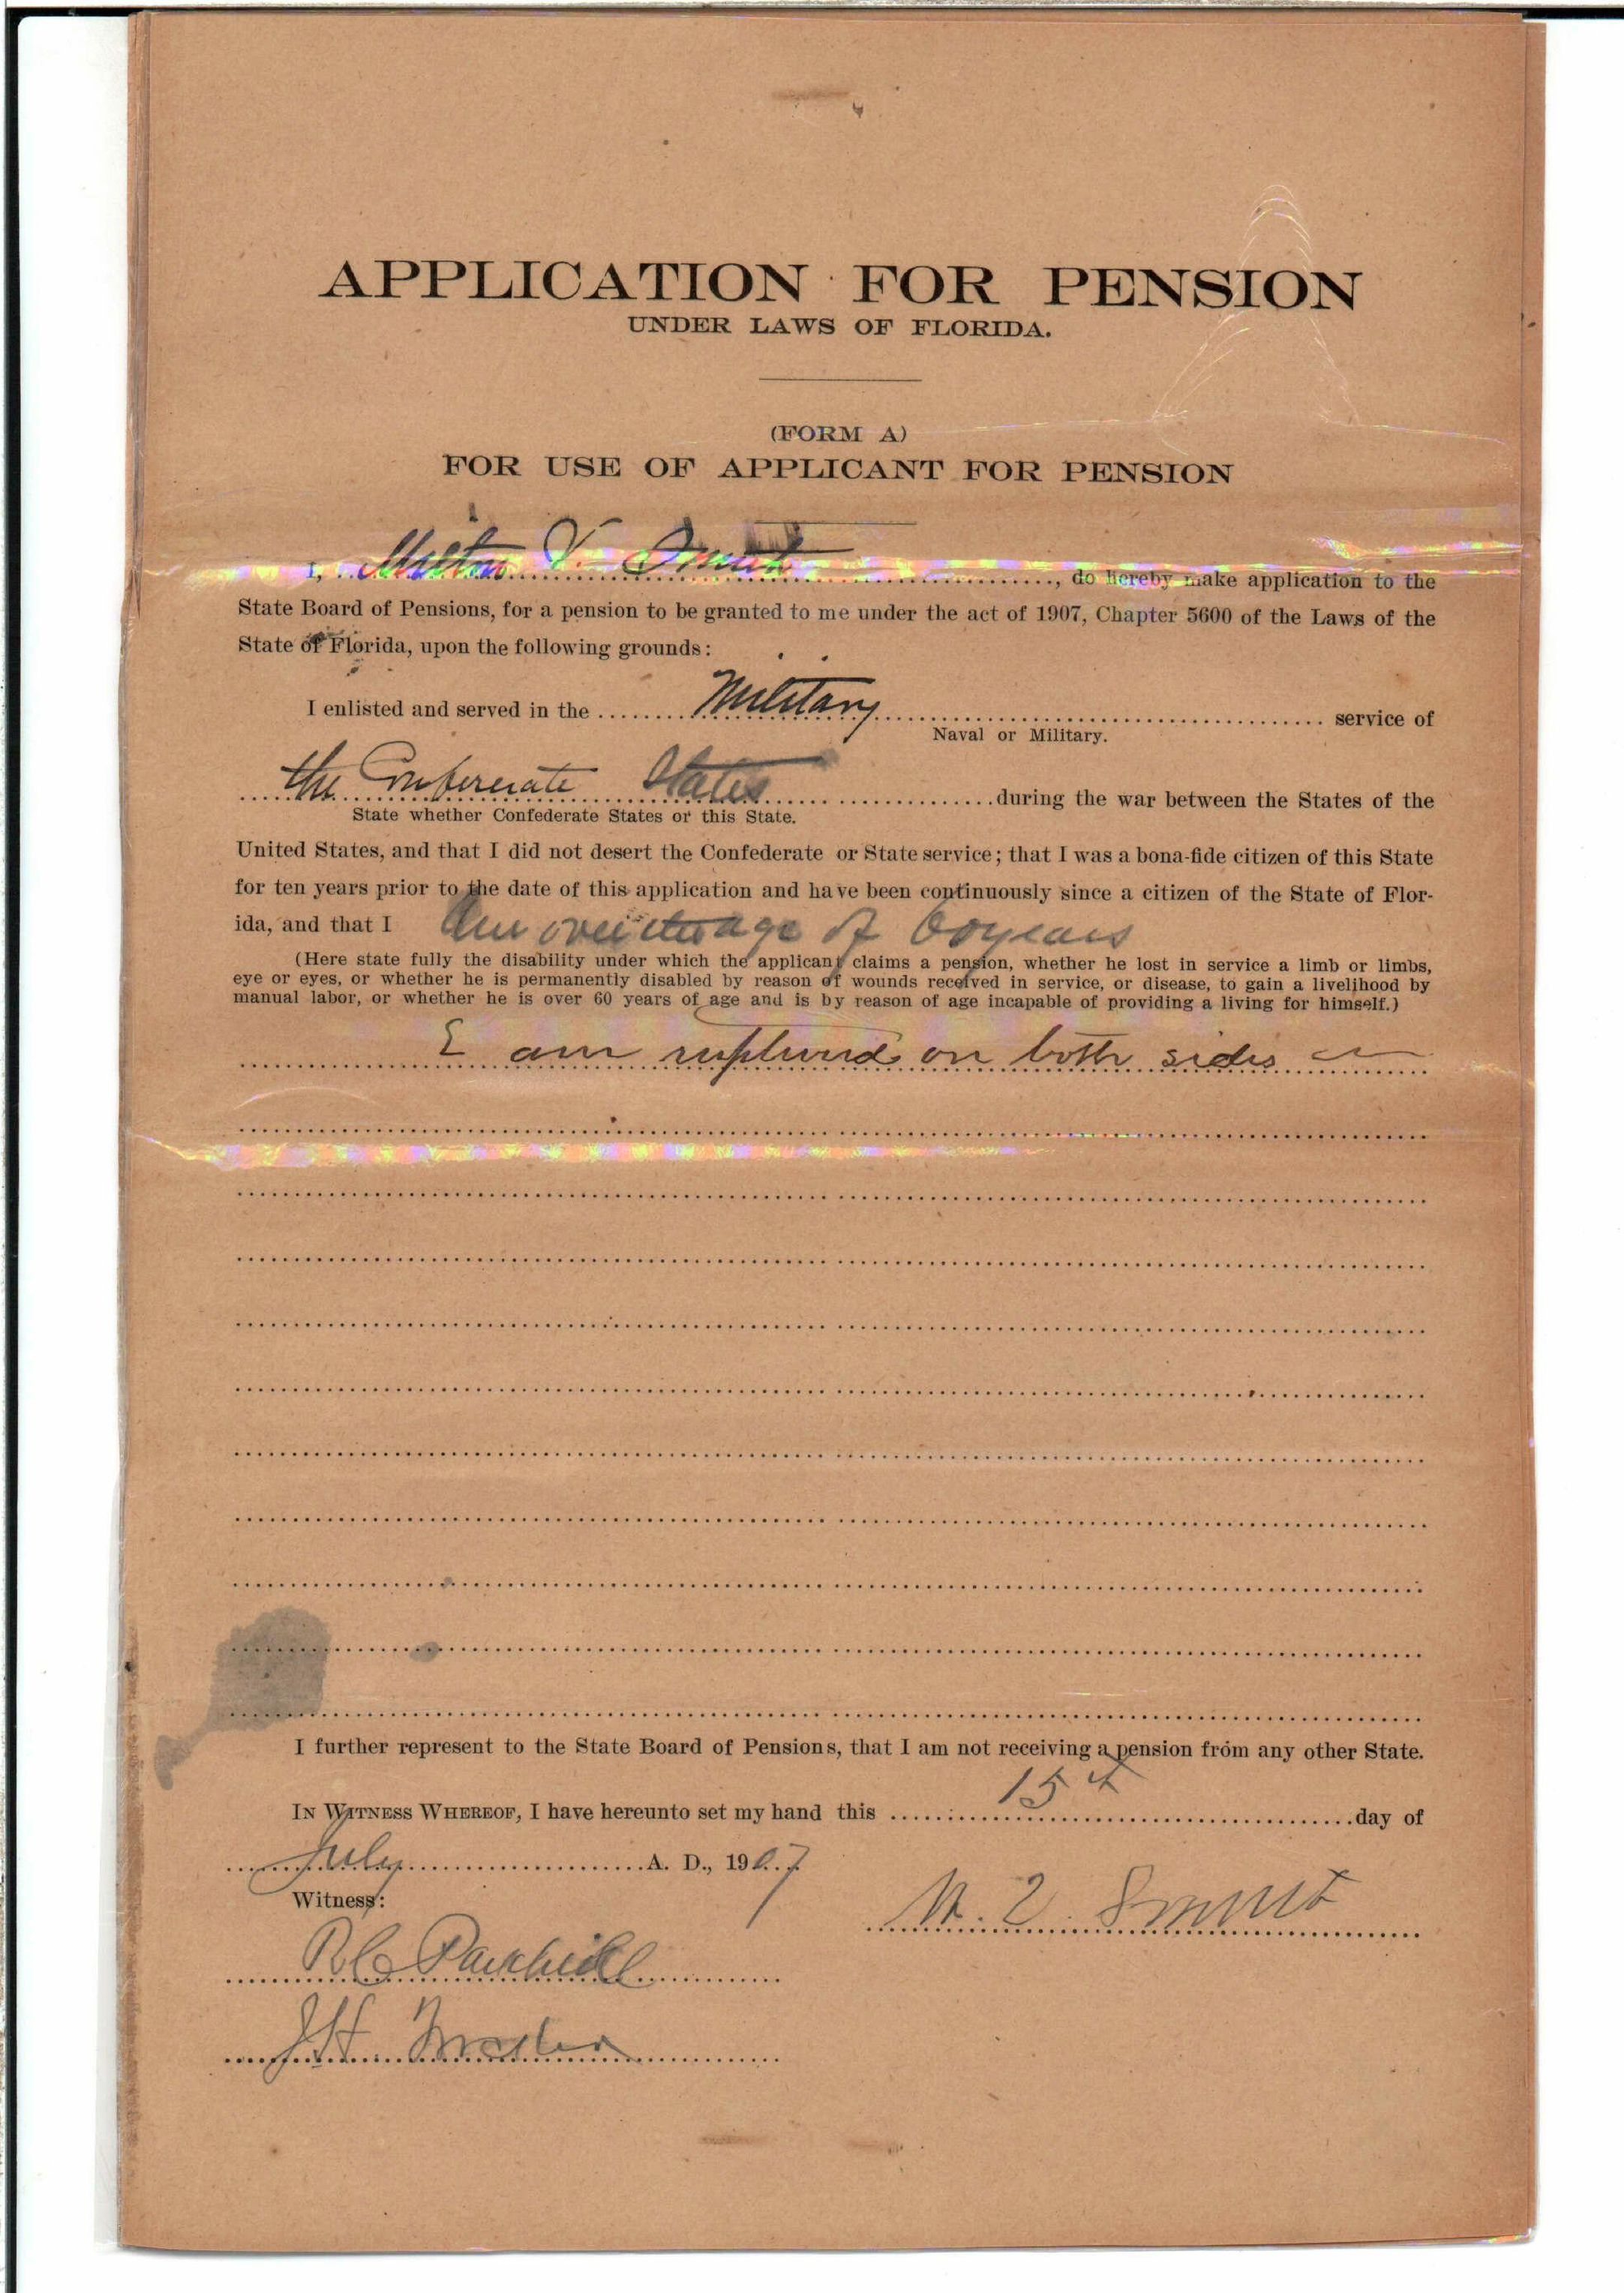 APPLICATION FOR PENSION
UNDER LAWS OF FLORIDA.
(FORM A)
FOR USE OF APPLICANT FOR PENSION
I, Milton V. Smith, do hereby make application to the
State Board of Pensions, for a pension to be granted to me under the act of 1907, Chapter 5600 of the Laws of the
State of Florida, upon the following grounds:
I enlisted and served in the Military service of
Naval or Military.
the Confererate States during the war between the States of the
State whether Confederate States or this State.
United States, and that I did not desert the Confederate or State service; that I was a bona-fide citizen of this State
for ten years prior to the date of this application and have been continuously since a citizen of the State of Flor-
ida, and that I am over the age of 60 years
(Here state fully the disability under which the applicant claims a pension, whether he lost in service a limb or limbs,
eye or eyes, or whether he is permanently disabled by reason of wounds received in service, or disease, to gain a livelihood by
manual labor, or whether he is over 60 years of age and is by reason of age incapable of providing a living for himself.)
I am ruptured on both sides
I further represent to the State Board of Pensions, that I am not receiving a pension from any other State.
IN WITNESS WHEREOF, I have hereunto set my hand this 15th day of
July A. D., 1907
Witness:
M. V. Smith
R C Parkhill
J H